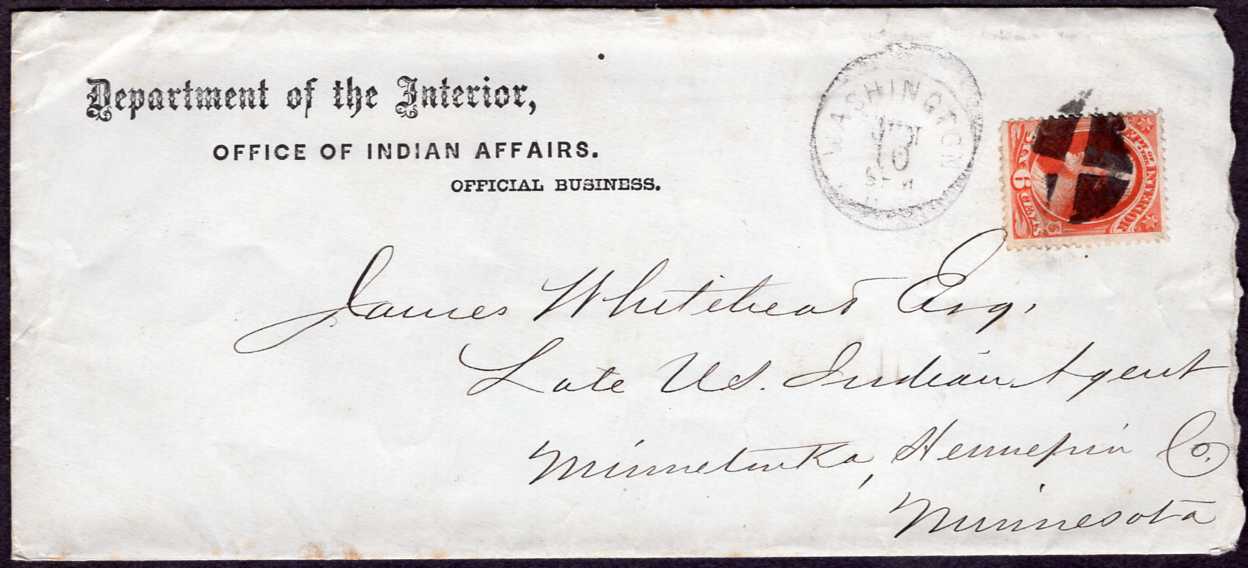 Department of the Interior,
OFFICE OF INDIAN AFFAIRS.
OFFICIAL BUSINESS.
WASHINGTON
10
DEPT. OF INTERIOR
SIX 6 CENTS
James Whitehead Esq.
Late U.S. Indian Agent
Minnetonka, Hennepin Co.
Minnesota